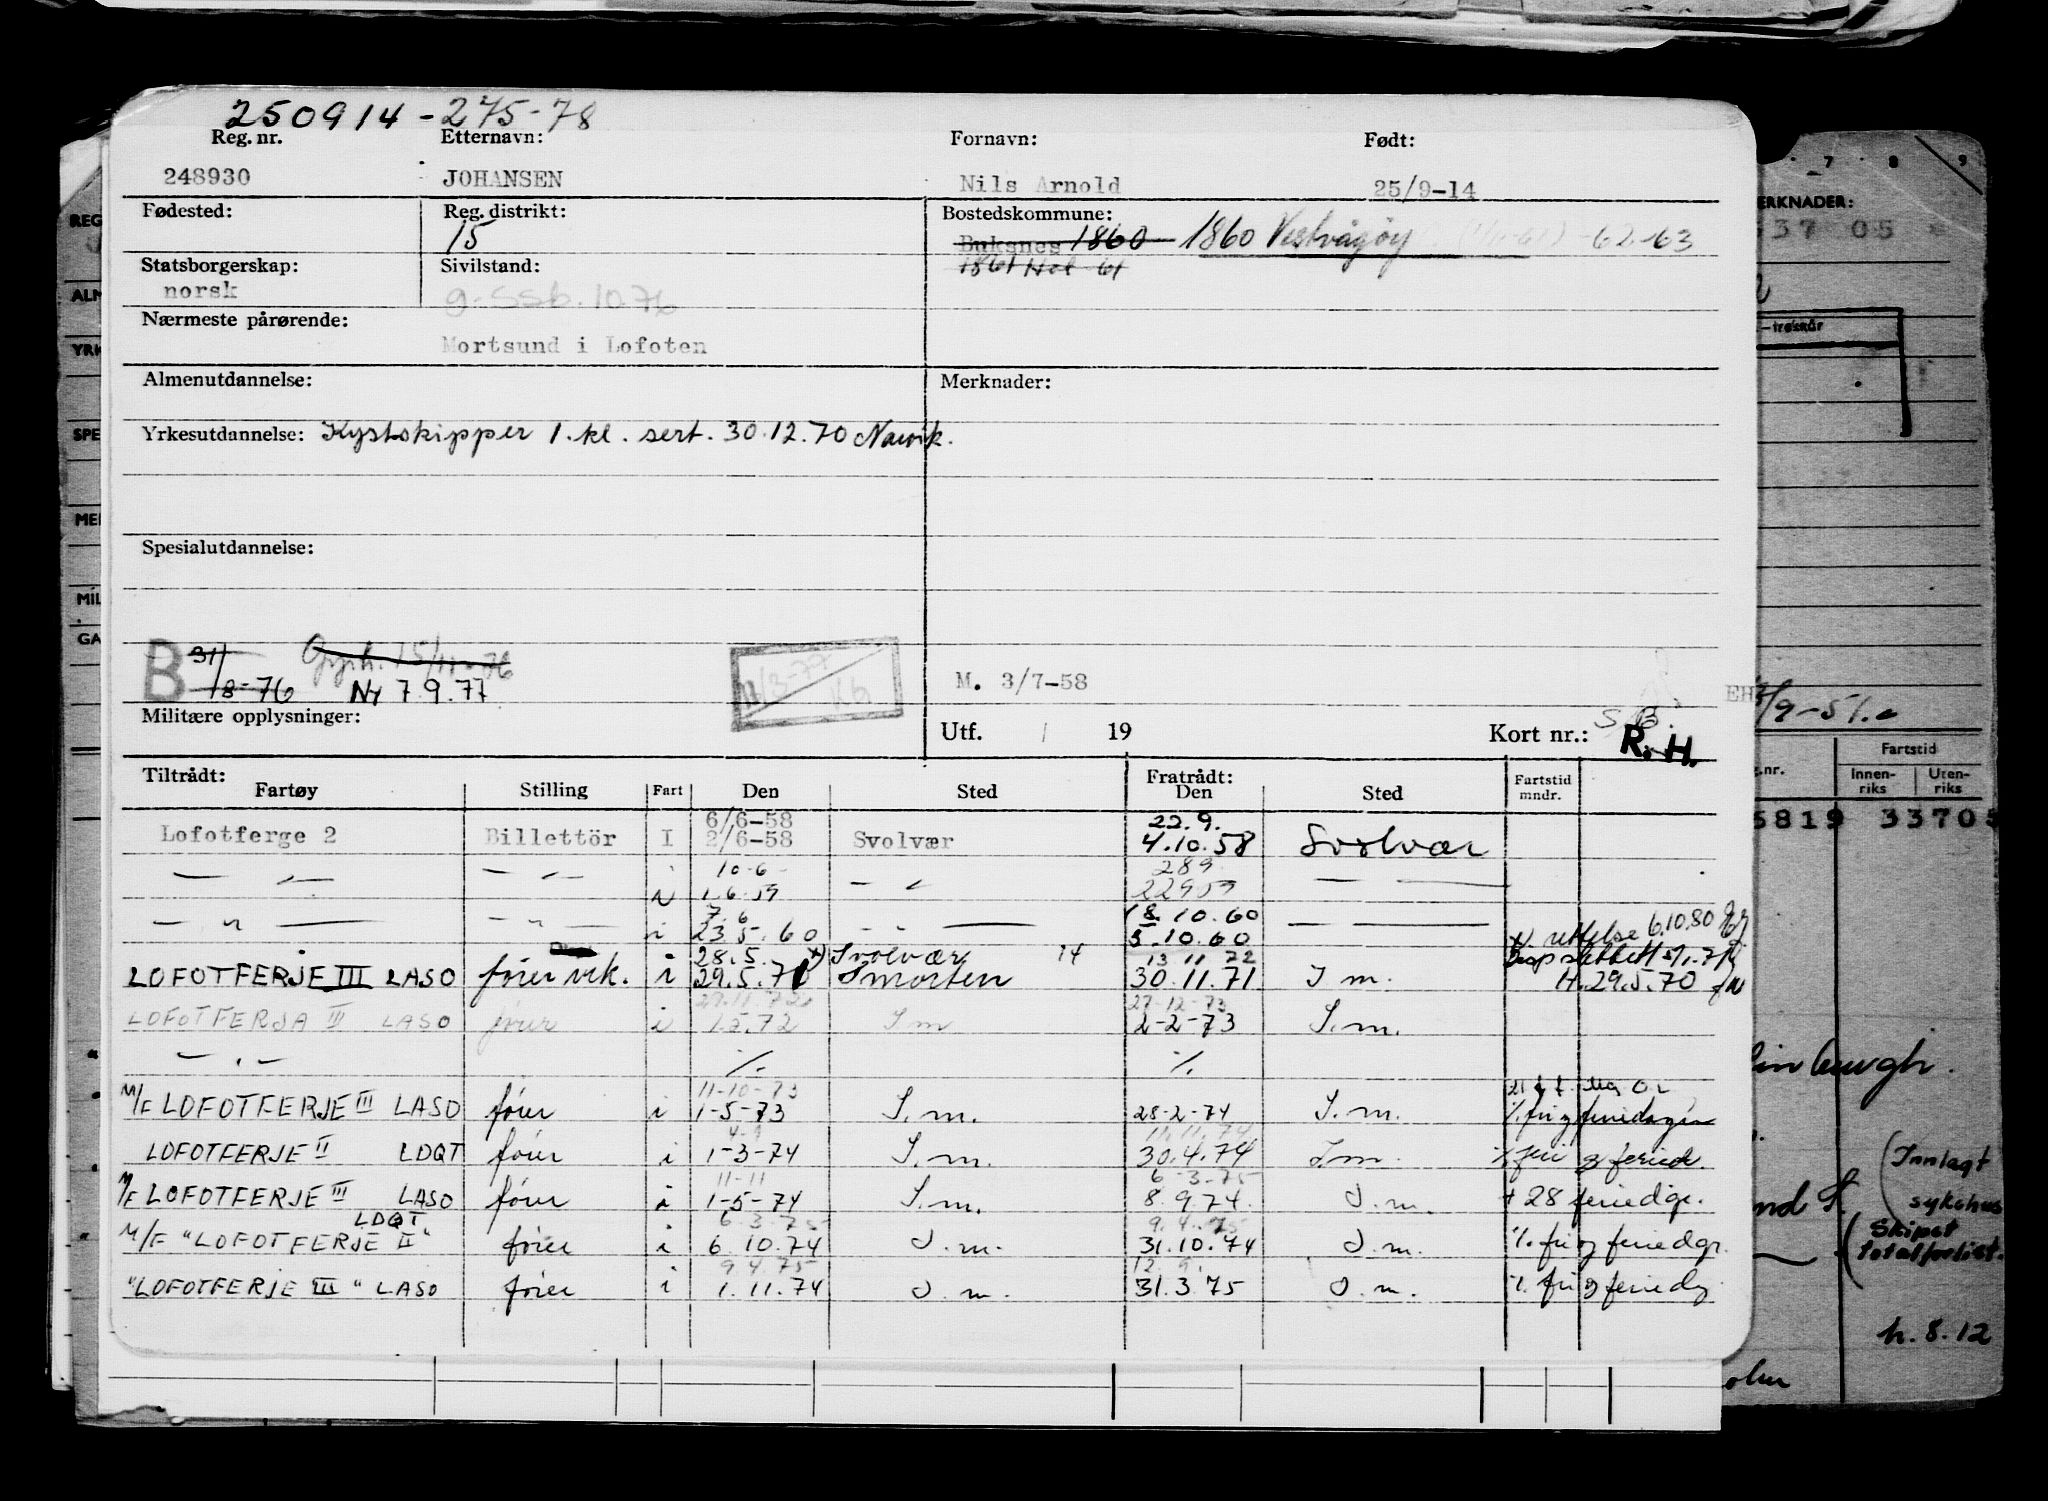 250914-275-78
Reg. nr. Etternavn: Fornavn: Født:
248930 JOHANSEN Nils Arnold 25/9-14
Fødested: Reg. distrikt: Bostedskommune:
15 Buksnes 1860 1860 Vestvågøy -62-63
1861 Hol 61
Statsborgerskap: Sivilstand:
norsk g-SSb. 10.76
Nærmeste pårørende:
Mortsund i Lofoten
Almenutdannelse: Merknader:
Yrkesutdannelse: Kystskipper 1. kl. sert. 30.12.70 Narvik.
Spesialutdannelse:
B 31/8-76 15/11-76
Ny 7.9.77
11/3-77
M. 3/7-58
Militære opplysninger: Utf. / 19 Kort nr.: S.B.
R.H.
Tiltrådt: Fratrådt: Fartstid
Fartøy Stilling Fart Den Sted Den Sted mndr.
6/6-58 22.9.
Lofotferge 2 Billettör I 2/6-58 Svolvær 4.10.58 Svolvær
10-6 289
— " — — " — N 1.6.59 — " 22959 —
7.6 18.10.60
— " — — " — i 23.5.60 — 5.10.60 — x) rettelse 6.10.80
28.5. x) Svolvær 14 13 11 72
LOFOTFERJE III LASO fører vik. i 29.5.71 Smorten 30.11.71 S m. H. 29.5.70
27-12-73
LOFOTFERJA III LASO fører i 1.5.72 S m 2-2-73 S.m.
— " — %. %.
11-10-73
M/F LOFOTFERJE III LASO fører i 1-5-73 S.m. 28-2-74 S.m. %. fri og feriedager
11.11.74
LOFOTFERJE II LDQT fører i 1-3-74 S.m. 30.4.74 S.m. % fri og feried.
11-11 6-3-75
M/F LOFOTFERJE III LASO fører i 1-5-74 S.m. 8.9.74. S.m. + 28 feriedgr.
LDQT 6.3.75 9.4.75
M/F "LOFOTFERJE II" fører i 6.10.74 S.m. 31.10.74 S.m. %. fri og feriedgr.
9.4.75 12.9.
"LOFOTFERJE III" LASO fører i 1.11.74 S.m. 31.3.75 S.m. %. fri og feriedg
7 8 9
ERKNADER:
537 05
/9-51.
Fartstid
g.nr. Innen-riks Uten-riks
5819 33705
Innlagt
sykehus
Skipet
totalforlist.
h. 8.12
REG
ALM
YRK
SPE
MIL